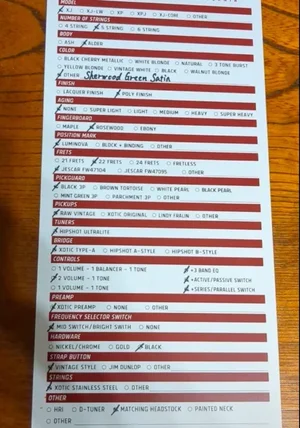 MODEL
XJ XJ-1W XP XPJ XJ-CORE OTHER
NUMBER OF STRINGS
4 STRING 5 STRING 6 STRING
BODY
ASH ALDER
COLOR
BLACK CHERRY METALLIC WHITE BLONDE NATURAL 3 TONE BURST
YELLOW BLONDE VINTAGE WHITE BLACK WALNUT BLONDE
OTHER Sherwood Green Satin
FINISH
LACQUER FINISH POLY FINISH
AGING
NONE SUPER LIGHT LIGHT MEDIUM HEAVY SUPER HEAVY
FINGERBOARD
MAPLE ROSEWOOD EBONY
POSITION MARK
LUMINOVA BLOCK + BINDING OTHER
FRETS
21 FRETS 22 FRETS 24 FRETS FRETLESS
JESCAR FW47104 JESCAR FW47095 OTHER
PICKGUARD
BLACK 3P BROWN TORTOISE WHITE PEARL BLACK PEARL
MINT GREEN 3P PARCHMENT 3P OTHER
PICKUPS
RAW VINTAGE XOTIC ORIGINAL LINDY FRALIN OTHER
TUNERS
HIPSHOT ULTRALITE
BRIDGE
XOTIC TYPE-A HIPSHOT A-STYLE HIPSHOT B-STYLE
CONTROLS
1 VOLUME - 1 BALANCER - 1 TONE +3 BAND EQ
2 VOLUME - 1 TONE +ACTIVE/PASSIVE SWITCH
1 VOLUME - 1 TONE +SERIES/PARALLEL SWITCH
PREAMP
XOTIC PREAMP NONE OTHER
FREQUENCY SELECTOR SWITCH
MID SWITCH/BRIGHT SWITH NONE
HARDWARE
NICKEL/CHROME GOLD BLACK
STRAP BUTTON
VINTAGE STYLE JIM DUNLOP OTHER
STRINGS
XOTIC STAINLESS STEEL OTHER
OTHER
HRI D-TUNER MATCHING HEADSTOCK PAINTED NECK
OTHER